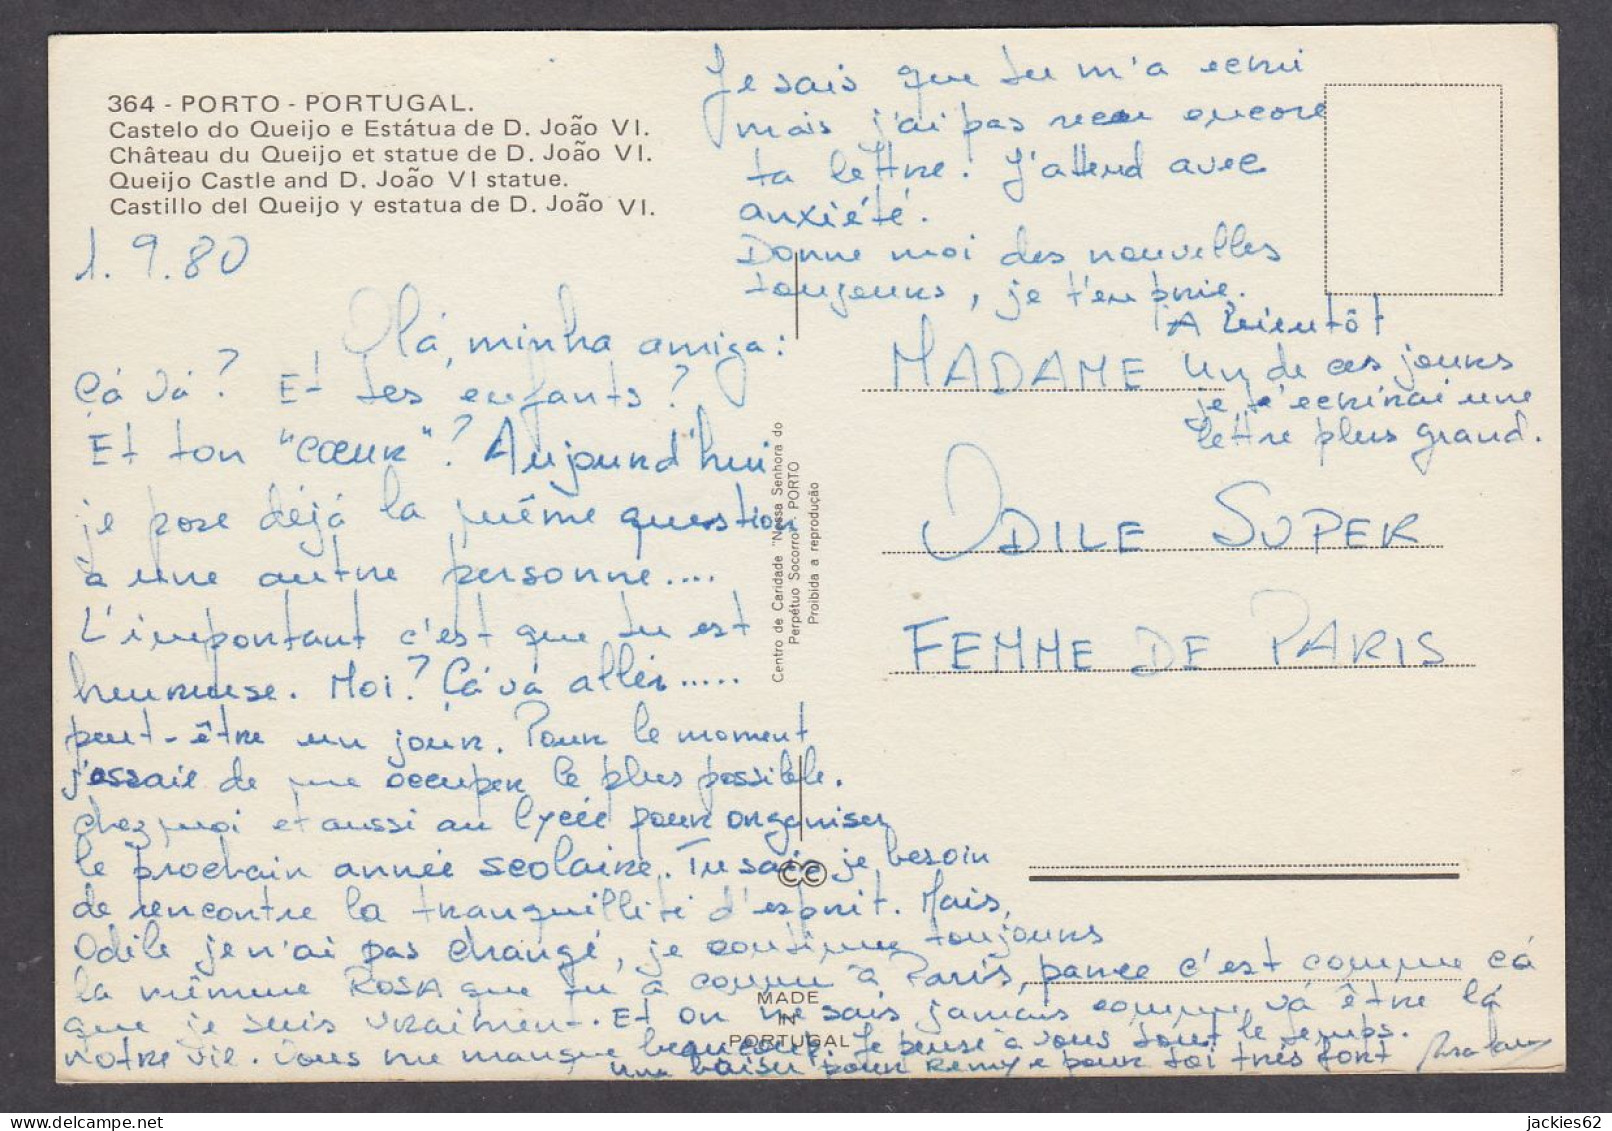 364 - PORTO - PORTUGAL.
Castelo do Queijo e Estátua de D. João VI.
Château du Queijo et statue de D. João VI.
Queijo Castle and D. João VI statue.
Castillo del Queijo y estatua de D. João VI.
1.9.80
Olá, minha amiga:
Çá vá? Et tes enfants?
Et ton "cœur"? Aujourd'hui
je pose déjá la même question
à une autre personne....
L'important c'est que tu est
heureuse. Moi? Çá vá aller.....
peut-être un jour. Pour le moment
j'essaie de me occuper le plus possible.
chez moi et aussi au lycée pour organiser
le prochain année scolaire. Tu sais je besoin
de rencontre la tranquillité d'esprit. Mais,
Odile je n'ai pas changé, je continue toujours
la mêmme ROSA que tu a connu à Paris, parce c'est comme çá
que je suis vraiment. Et on ne sais jamais comme vá être lá
notre vie. Vous me manque beaucoup. Je pense à vous tout le temps.
une baiser pour Remy e pour toi très fort
Je sais que tu m'a ecrui
mais j'ai pas reçu encore
ta lettre. J'attend avec
anxiété.
Donne moi des nouvelles
toujours, je t'en prie.
A bientôt
Un de ces jours
je t'ecrirai une
lettre plus grand.
MADAME
ODILE SUPER
FEMME DE PARIS
Centro de Caridade "Nossa Senhora do
Perpétuo Socorro" - PORTO
Proibida a reprodução
CC
MADE
IN
PORTUGAL
jackies62